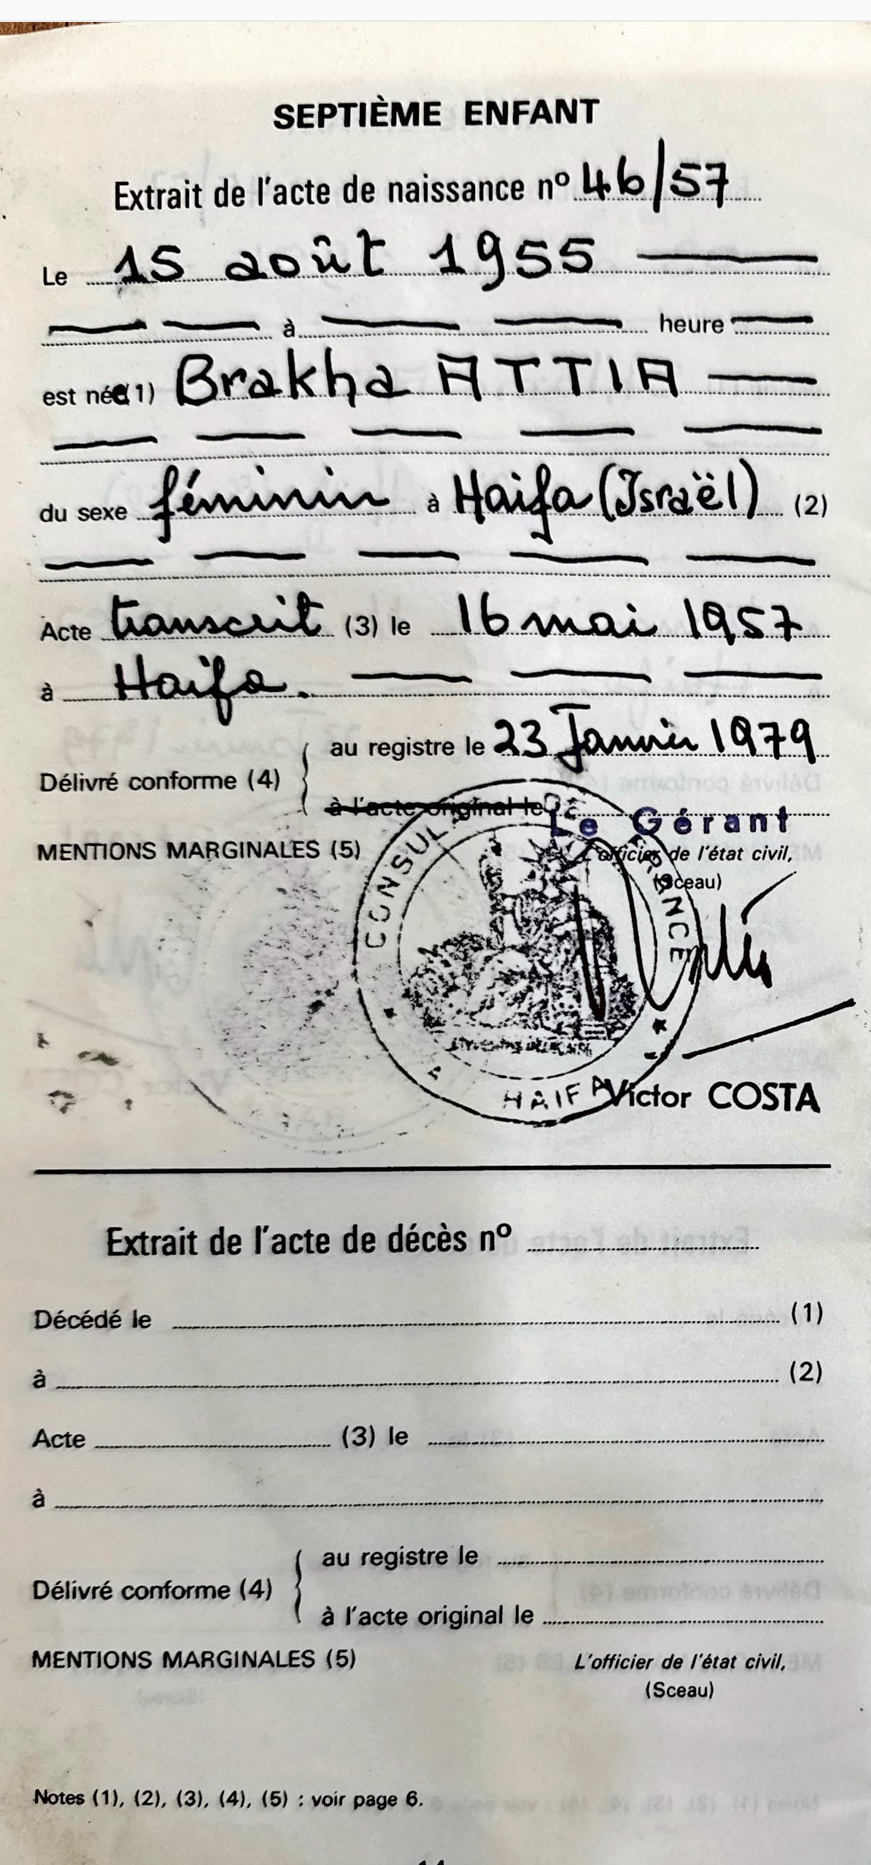 SEPTIÈME ENFANT
Extrait de l'acte de naissance nº 46/57
Le 15 août 1955
à heure
est née (1) Brakha ATTIA
du sexe féminin à Haifa (Israël) (2)
Acte transcrit (3) le 16 mai 1957
à Haifa.
au registre le 23 Janvier 1979
Délivré conforme (4)
à l'acte original le
Le Gérant
MENTIONS MARGINALES (5)
L'officier de l'état civil,
(Sceau)
CONSULAT DE FRANCE
HAIFA
Victor COSTA
Extrait de l'acte de décès nº
Décédé le (1)
à (2)
Acte (3) le
à
au registre le
Délivré conforme (4)
à l'acte original le
MENTIONS MARGINALES (5)
L'officier de l'état civil,
(Sceau)
Notes (1), (2), (3), (4), (5) : voir page 6.